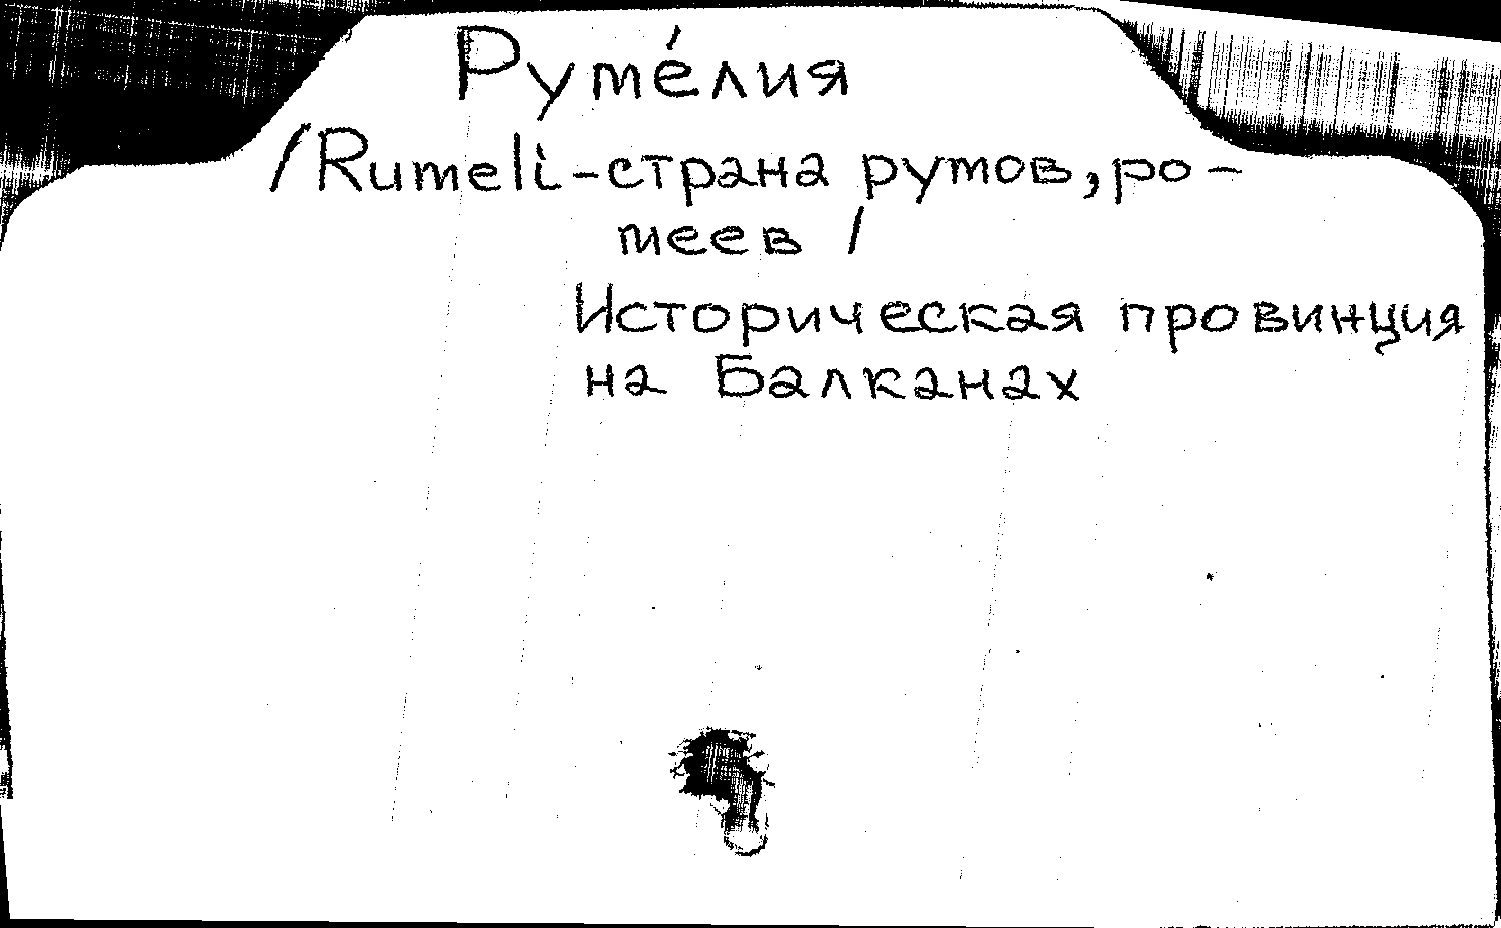 Руме́лия
/Rumeli-страна румов, ро-
меев /
Историческая провинция
на Балканах